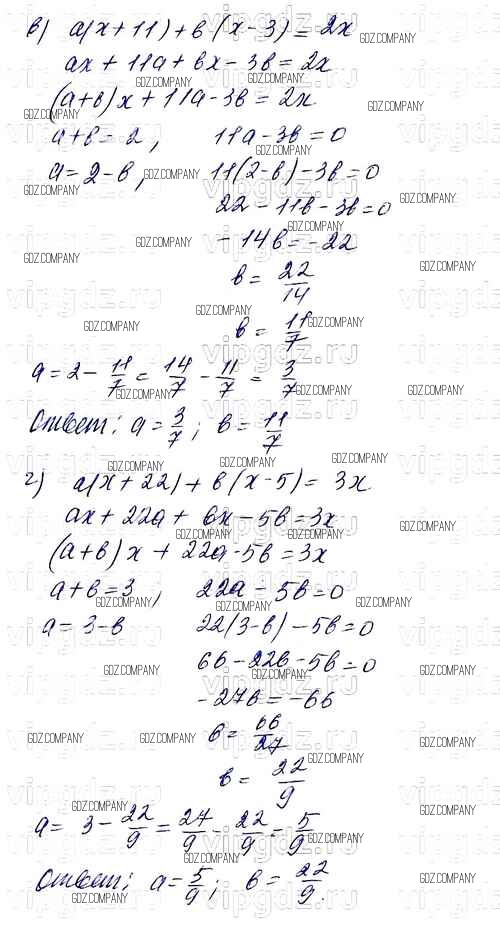 в) a(x+11)+в(x-3)=2x
ax+11a+вx-3в=2x
(a+в)x+11a-3в=2x
a+в=2, 11a-3в=0
a=2-в, 11(2-в)-3в=0
22-11в-3в=0
-14в=-22
в=22/14
в=11/7
a=2-11/7=14/7-11/7=3/7
Ответ: a=3/7; в=11/7
г) a(x+22)+в(x-5)=3x
ax+22a+вx-5в=3x
(a+в)x+22a-5в=3x
a+в=3, 22a-5в=0
a=3-в 22(3-в)-5в=0
66-22в-5в=0
-27в=-66
в=66/27
в=22/9
a=3-22/9=27/9-22/9=5/9
Ответ: a=5/9; в=22/9.
GDZ.COMPANY
vipgdz.ru